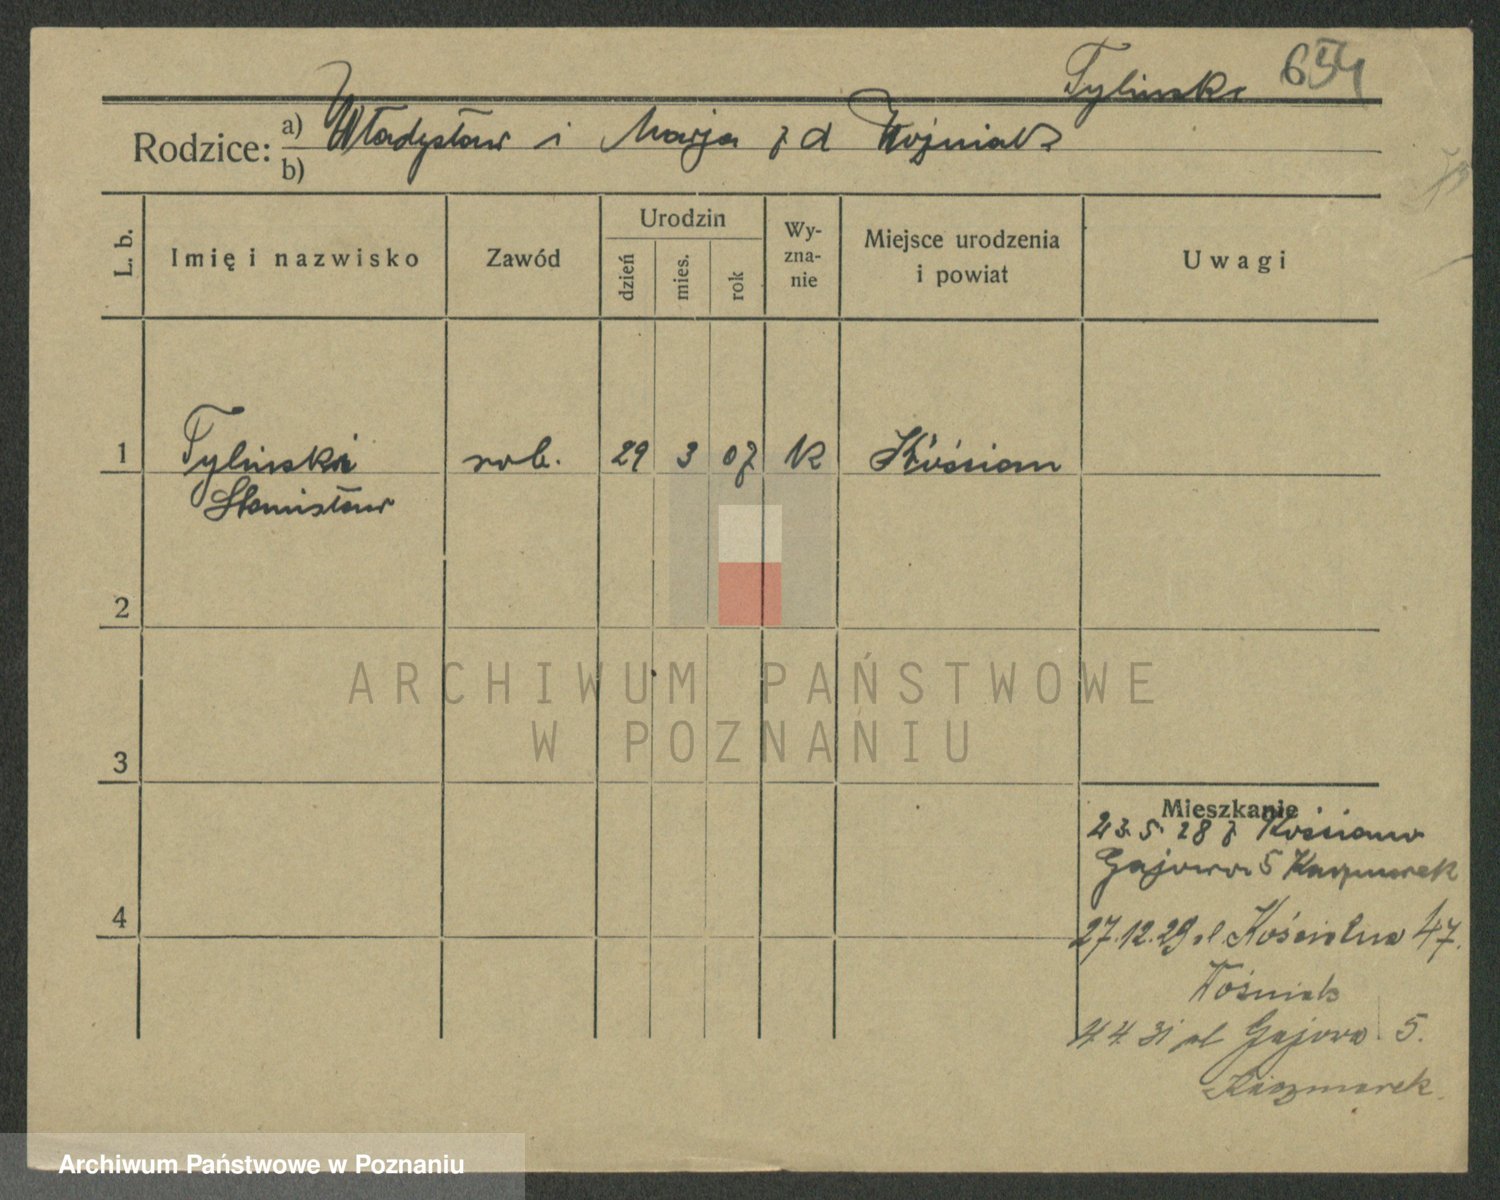 Tylinski 654
Rodzice: a) Władysław i Marja z d Woźniak
b)
L. b.
Imię i nazwisko
Zawód
Urodzin
dzień
mies.
rok
Wy-
zna-
nie
Miejsce urodzenia
i powiat
Uwagi
1 Tylinski rob. 29 3 07 k Kościan
Stanisław
2
3
4
Mieszkanie
23.5.28 z Kościana
Gajowa 5 Kaczmarek
27.12.29 ul. Kościelna 47.
Woźniak
4.4.31 ul Gajowa 5.
Kaczmarek.
ARCHIWUM PAŃSTWOWE
W POZNANIU
Archiwum Państwowe w Poznaniu